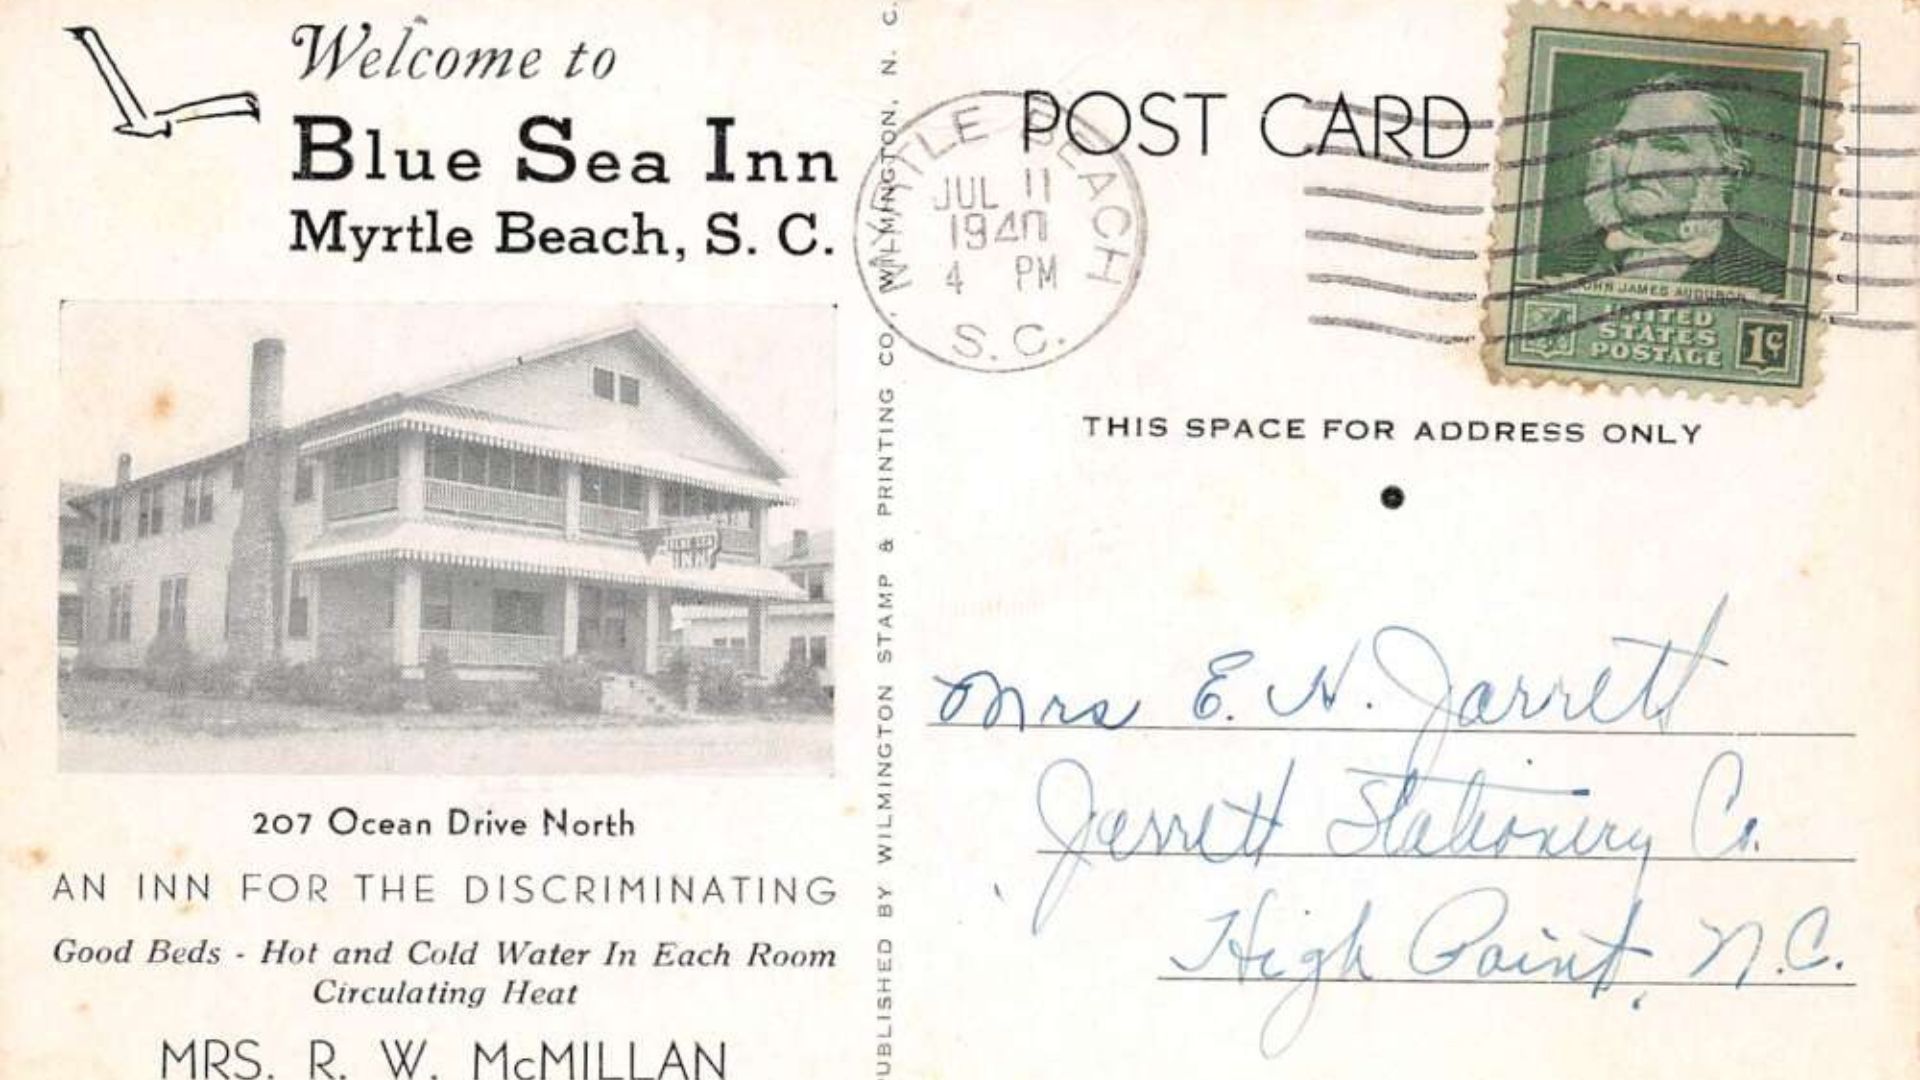 Welcome to
Blue Sea Inn
Myrtle Beach, S. C.
INN
207 Ocean Drive North
AN INN FOR THE DISCRIMINATING
Good Beds - Hot and Cold Water In Each Room
Circulating Heat
MRS. R. W. McMILLAN
PUBLISHED BY WILMINGTON STAMP & PRINTING CO., WILMINGTON, N. C.
MYRTLE BEACH
JUL 11
1940
4 PM
S.C.
POST CARD
JOHN JAMES AUDUBON
UNITED
STATES
POSTAGE
1¢
THIS SPACE FOR ADDRESS ONLY
Mrs E. N. Jarrett
Jarrett Stationery Co.
High Point, N.C.